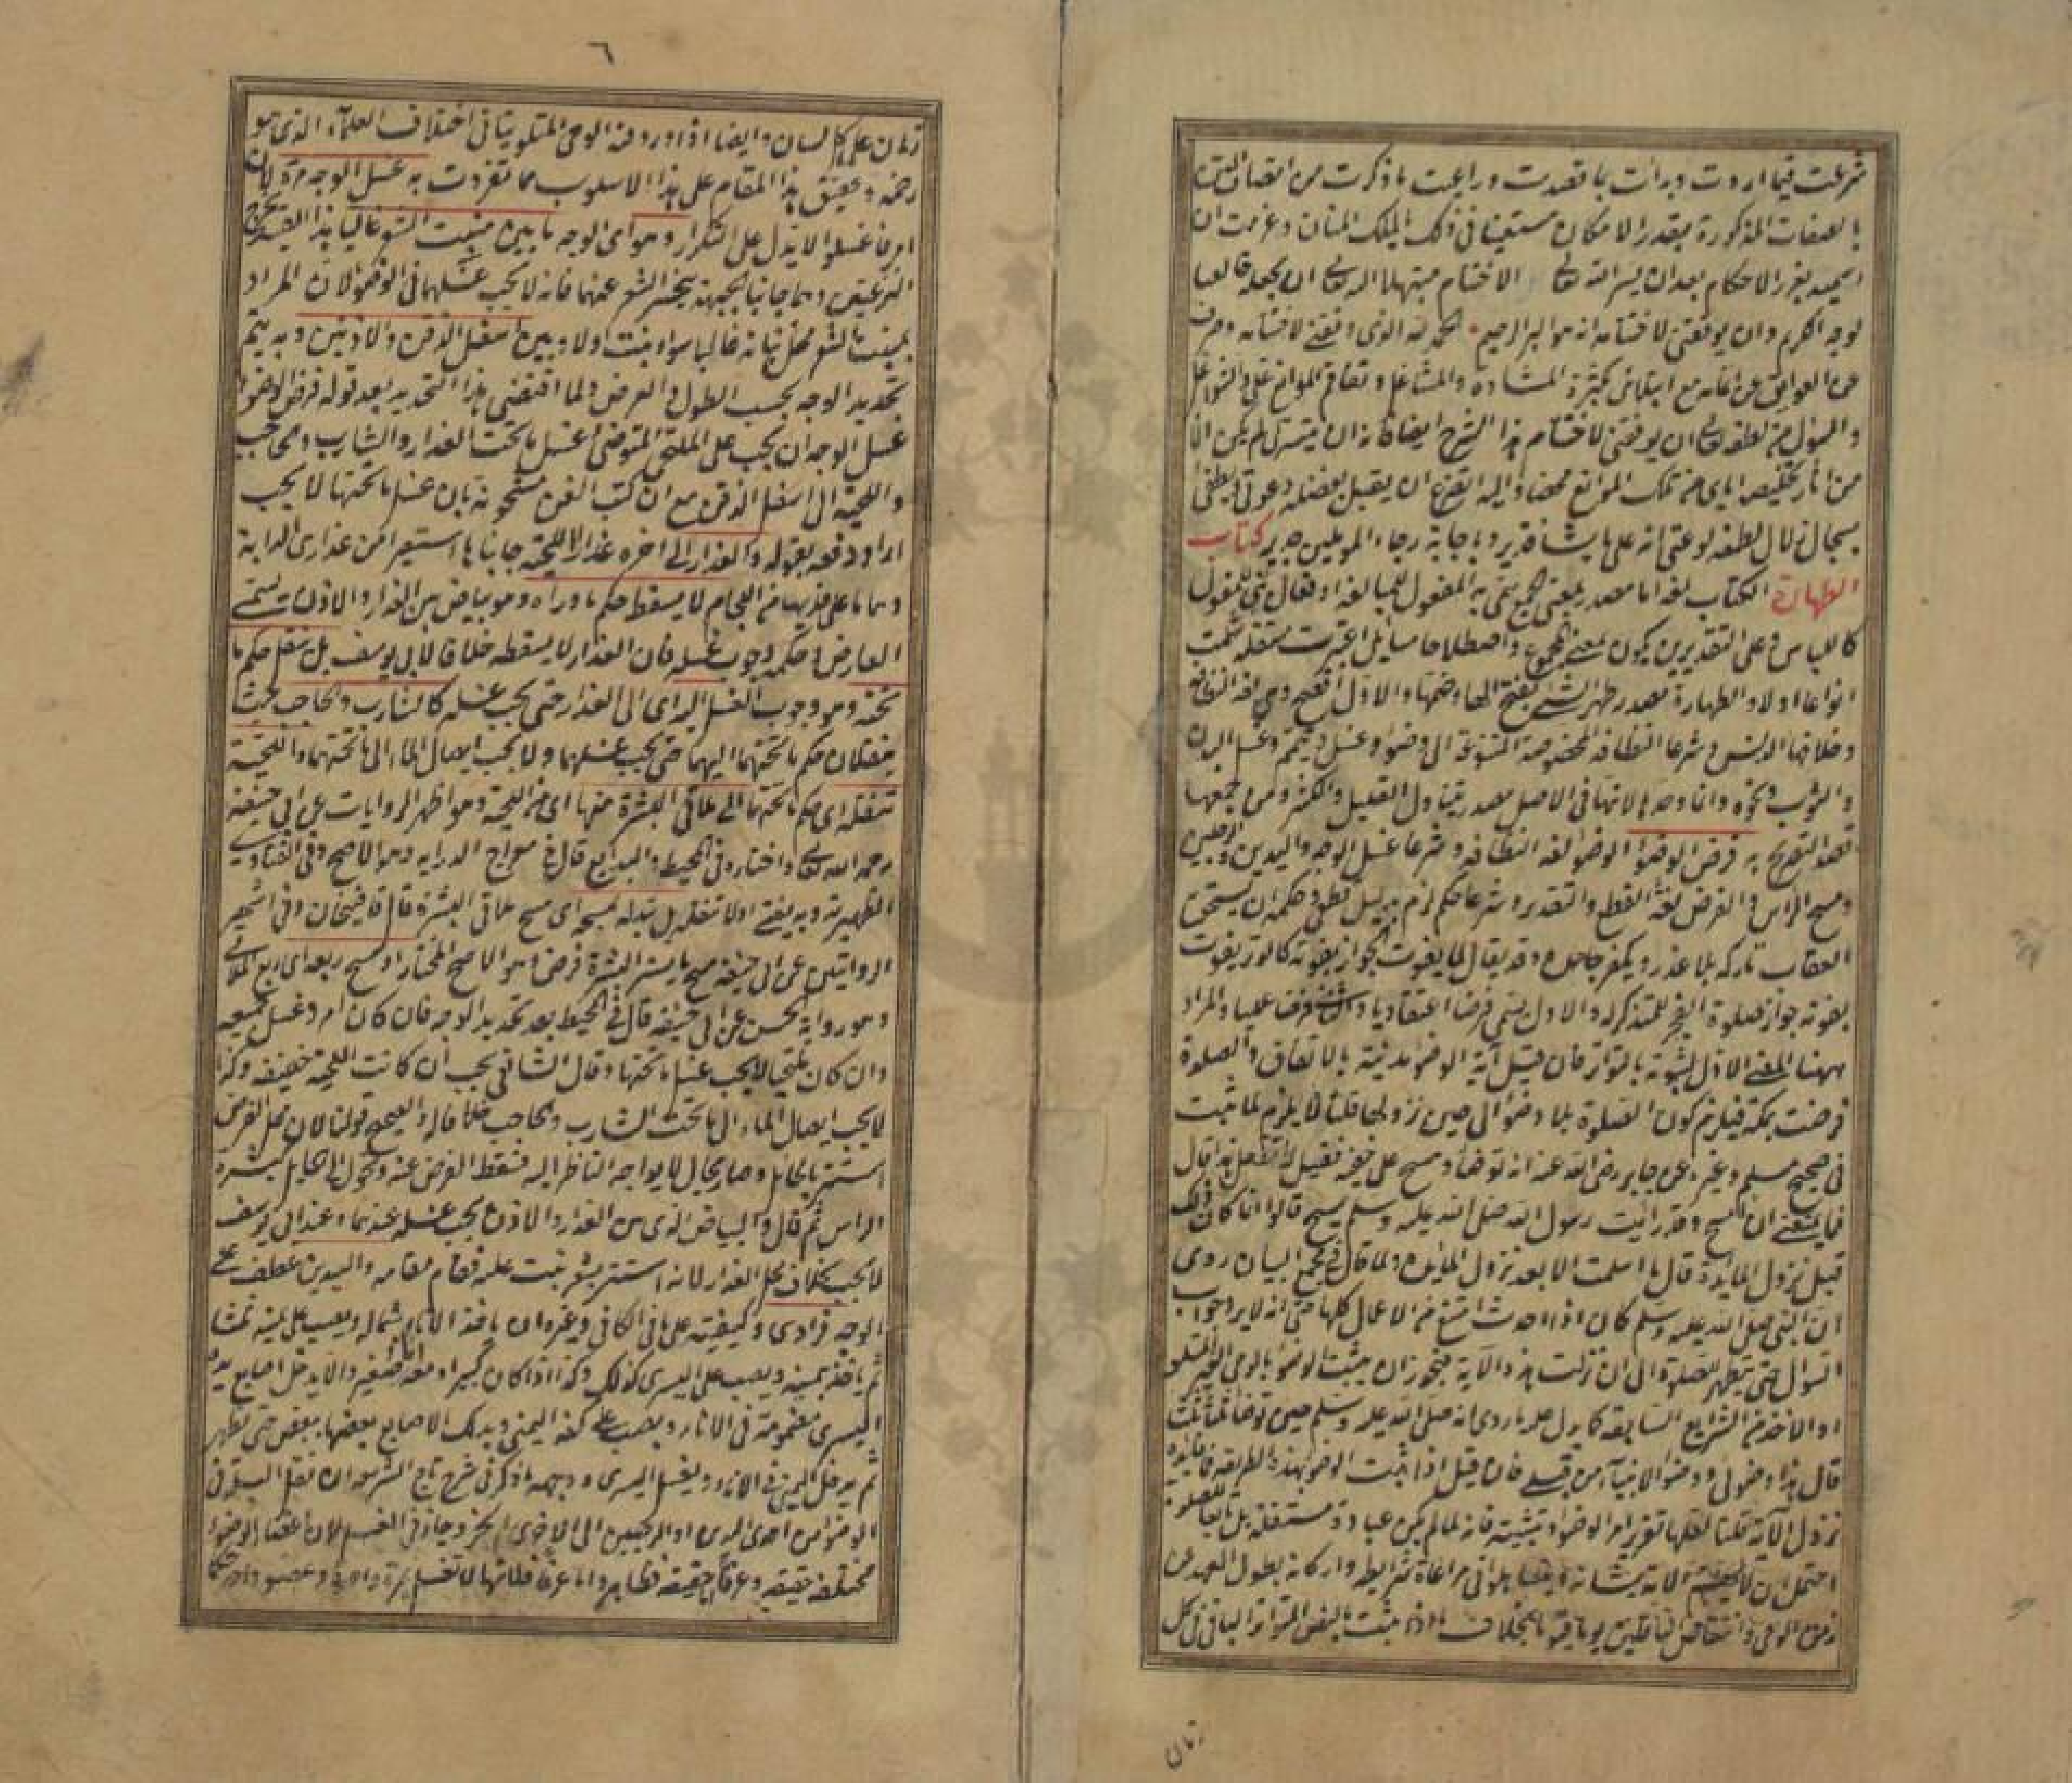 شرعت فيما اردت وبدأت بما قصدت وراعيت ما ذكرت من اتصاف المتن
بالصفات المذكورة بقدر الامكان مستعينا في ذلك بالملك المنان وعزمت ان
اسميه بغرر الاحكام بعد ان ييسر الله تعالى الاختتام مبتهلا الى الله تعالى ان يجعله خالصا
لوجهه الكريم وان يوفقني لاختتامه انه هو البر الرحيم الحمد لله الذي وفقني لاختتامه وصرف
عني العوائق عن اتمامه مع ابتلائي بكثرة المشاغل وتفاقم الموانع
والمسؤل من لطفه تعالى ان يوفقني لاختتام هذا الشرح ايضا فانه ان تيسر لي لم يكن الا
من اثار تخليصه اياي من تلك الموانع محضا واليه اتضرع ان يقبل بفضله دعوتي ويطفئ
بسجال زلال لطفه لوعتي انه على ما يشاء قدير وباجابة رجاء المؤملين جدير كتاب
الطهارة الكتاب لغة اما مصدر بمعنى الجمع سمي به المفعول للمبالغة او فعال بني للمفعول
كاللباس وعلى التقديرين يكون بمعنى المجموع واصطلاحا مسائل اعتبرت مستقلة شملت
انواعا اولا والطهارة مصدر طهر الشئ بفتح الهاء وضمها والاول افصح وهي لغة النظافة
وخلافها الدنس وشرعا النظافة المخصوصة المتنوعة الى وضوء وغسل وتيمم وغسل البدن
والثوب ونحوه وانما وحدها لانها في الاصل مصدر يتناول القليل والكثير ومن جمعها
قصد التصريح به فرض الوضوء الوضوء لغة النظافة وشرعا غسل الوجه واليدين والرجلين
ومسح الراس والفرض لغة القطع والتقدير وشرعا حكم لزم بدليل قطعي وحكمه ان يستحق
العقاب تاركه بلا عذر ويكفر جاحده وقد يقال لما يفوت الجواز بفوته كالوتر يفوت
بفوته جواز صلوة الفجر للمتذكر له والاول يسمى فرضا اعتقاديا والثاني فرضا عمليا والمراد
ههنا المعنى الاول لثبوته بالتواتر فان قيل آية الوضوء مدنية بالاتفاق والصلوة
فرضت بمكة فيلزم كون الصلوة بلا وضوء الى حين نزولها قلنا لا يلزم لما ثبت
في صحيح مسلم وغيره عن جابر رضي الله عنه انه توضأ ومسح على خفيه فقيل له اتفعل هذا قال
فما يمنعني ان امسح وقد رايت رسول الله صلى الله عليه وسلم يمسح قالوا انما كان ذلك
قبل نزول المائدة قال ما اسلمت الا بعد نزول المائدة ولما قال في مجمع البيان روي
ان النبي صلى الله عليه وسلم كان اذا احدث امتنع من الاعمال كلها حتى انه لا يرد جواب
السؤال حتى يتطهر للصلوة الى ان نزلت هذه الآية فيجوز ان يثبت الوضوء بالوحي الغير المتلو
او الاخذ من الشرايع السابقة كما يدل عليه ما روي انه صلى الله عليه وسلم حين توضأ ثلثا ثلثا
قال هذا وضوئي ووضوء الانبياء من قبلي فان قيل اذا ثبت الوضوء بهذه الطريقة فما فائدة
نزول الآية قلنا لعلها تقرير امر الوضوء وتثبيته فانه لما لم يكن عبادة مستقلة بل تابعا للصلوة
احتمل ان لا تهتم الامة بشانه ويتساهلوا في مراعاة شرايطه واركانه بطول العهد عن
زمن الوحي وانتقاص الناقلين يوما فيوما بخلاف ما اذا ثبت بالنص المتواتر الباقي في كل
زمان
٦
زمان على كل لسان وايضا اذا ورد فيه الوحي المتلو يتأتى اختلاف العلماء الذي هو
رحمة وتحقيق هذا المقام على هذا الاسلوب مما تفردت به غسل الوجه مرة لان
امر فاغسلوا لا يدل على التكرار وهو اي الوجه ما بين منبت الشعر غالبا هذا القيد يخرج
النزعتين وهما جانبا الجبهة ينحسر الشعر عنهما فانه لا يجب غسلهما في الوضوء لان المراد
بمنبت الشعر محل نباته غالبا سواء نبت اولا وبين اسفل الذقن والاذنين وبه يتم
تحديد الوجه بحسب الطول والعرض ولما اقتضى هذا التحديد بعد قوله فرض الوضوء
غسل الوجه ان يجب على الملتحي المتوضئ غسل ما تحت العذار والشارب والحاجب
واللحية الى اسفل الذقن مع ان كتب الفن مشحونة بان غسل ما تحتها لا يجب
اراد دفعه بقوله والعذار الى اخره عذار اللحية جانباها استعير من عذاري الدابة
وهما ما على خديها من اللجام لا يسقط حكم ما وراه وهو بياض بين العذار والاذن يسمى
العارض وحكمه وجوب غسله فان العذار لا يسقطه خلافا لابي يوسف بل ينقل حكم ما
تحته وهو وجوب الغسل اليه اي الى العذار حتى يجب غسله كالشارب والحاجب حيث
ينقلان حكم ما تحتهما اليهما حتى يجب غسلهما ولا يجب ايصال الماء الى ما تحتهما واللحية
تنقله اي حكم ما تحتها الى ملاقي البشرة منها اي من اللحية وهو اظهر الروايات عن ابي حنيفة
رحمه الله تعالى واختاره في المحيط والبدايع قال في معراج الدراية وهو الاصح وفي الفتاوى
الظهيرية وبه يفتى اولا تنقله بل تبدله بمسحه اي مسح ملاقي البشرة وقال قاضيخان وفي اشهر
الروايتين عن ابي حنيفة مسح ما يستر البشرة فرض وهو الاصح المختار او مسح ربعه اي ربع الملاقي
وهو رواية الحسن عن ابي حنيفة قال في المحيط بعد تحديد الوجه فان كان امرد غسل جميعه
وان كان ملتحيا لا يجب غسل ما تحتها وقال الشافعي يجب ان كانت اللحية خفيفة وكذا
لا يجب ايصال الماء الى ما تحت الشارب والحاجب خلافا له والصحيح قولنا لان محل الفرض
استتر بالحائل وصار بحال لا يواجه الناظر اليه فسقط الفرض عنه وتحول الى الحائل كبشرة
الراس ثم قال والبياض الذي بين العذار والاذن يجب غسله عندهما وعند ابي يوسف
لا يجب بخلاف محل العذار لانه استتر بشعر نبت عليه فقام مقامه واليدين عطف على
الوجه فرادى وكيفيته على ما في الكافي وغيره ان ياخذ الاناء بشماله ويصب على يمينه ثلثا
ثم ياخذ بيمينه ويصب على اليسرى كذلك وكذا اذا كان كبيرا ومعه اناء صغير والا يدخل اصابع يده
اليسرى مضمومة في الاناء ويصب على كفه اليمنى ويدلك الاصابع بعضها ببعض حتى تطهر
ثم يدخل اليمنى في الاناء ويغسل اليسرى ووجهه ما ذكر في شرح تاج الشريعة ان نقل البلة في
الوضوء من احدى اليدين او الرجلين الى الاخرى لم يجز وجاز في الغسل لان اعضاء الوضوء
مختلفة حقيقة وعرفا اما حقيقة فظاهر واما عرفا فلانها لا تغسل بمرة واحدة وعضو واحد حكما